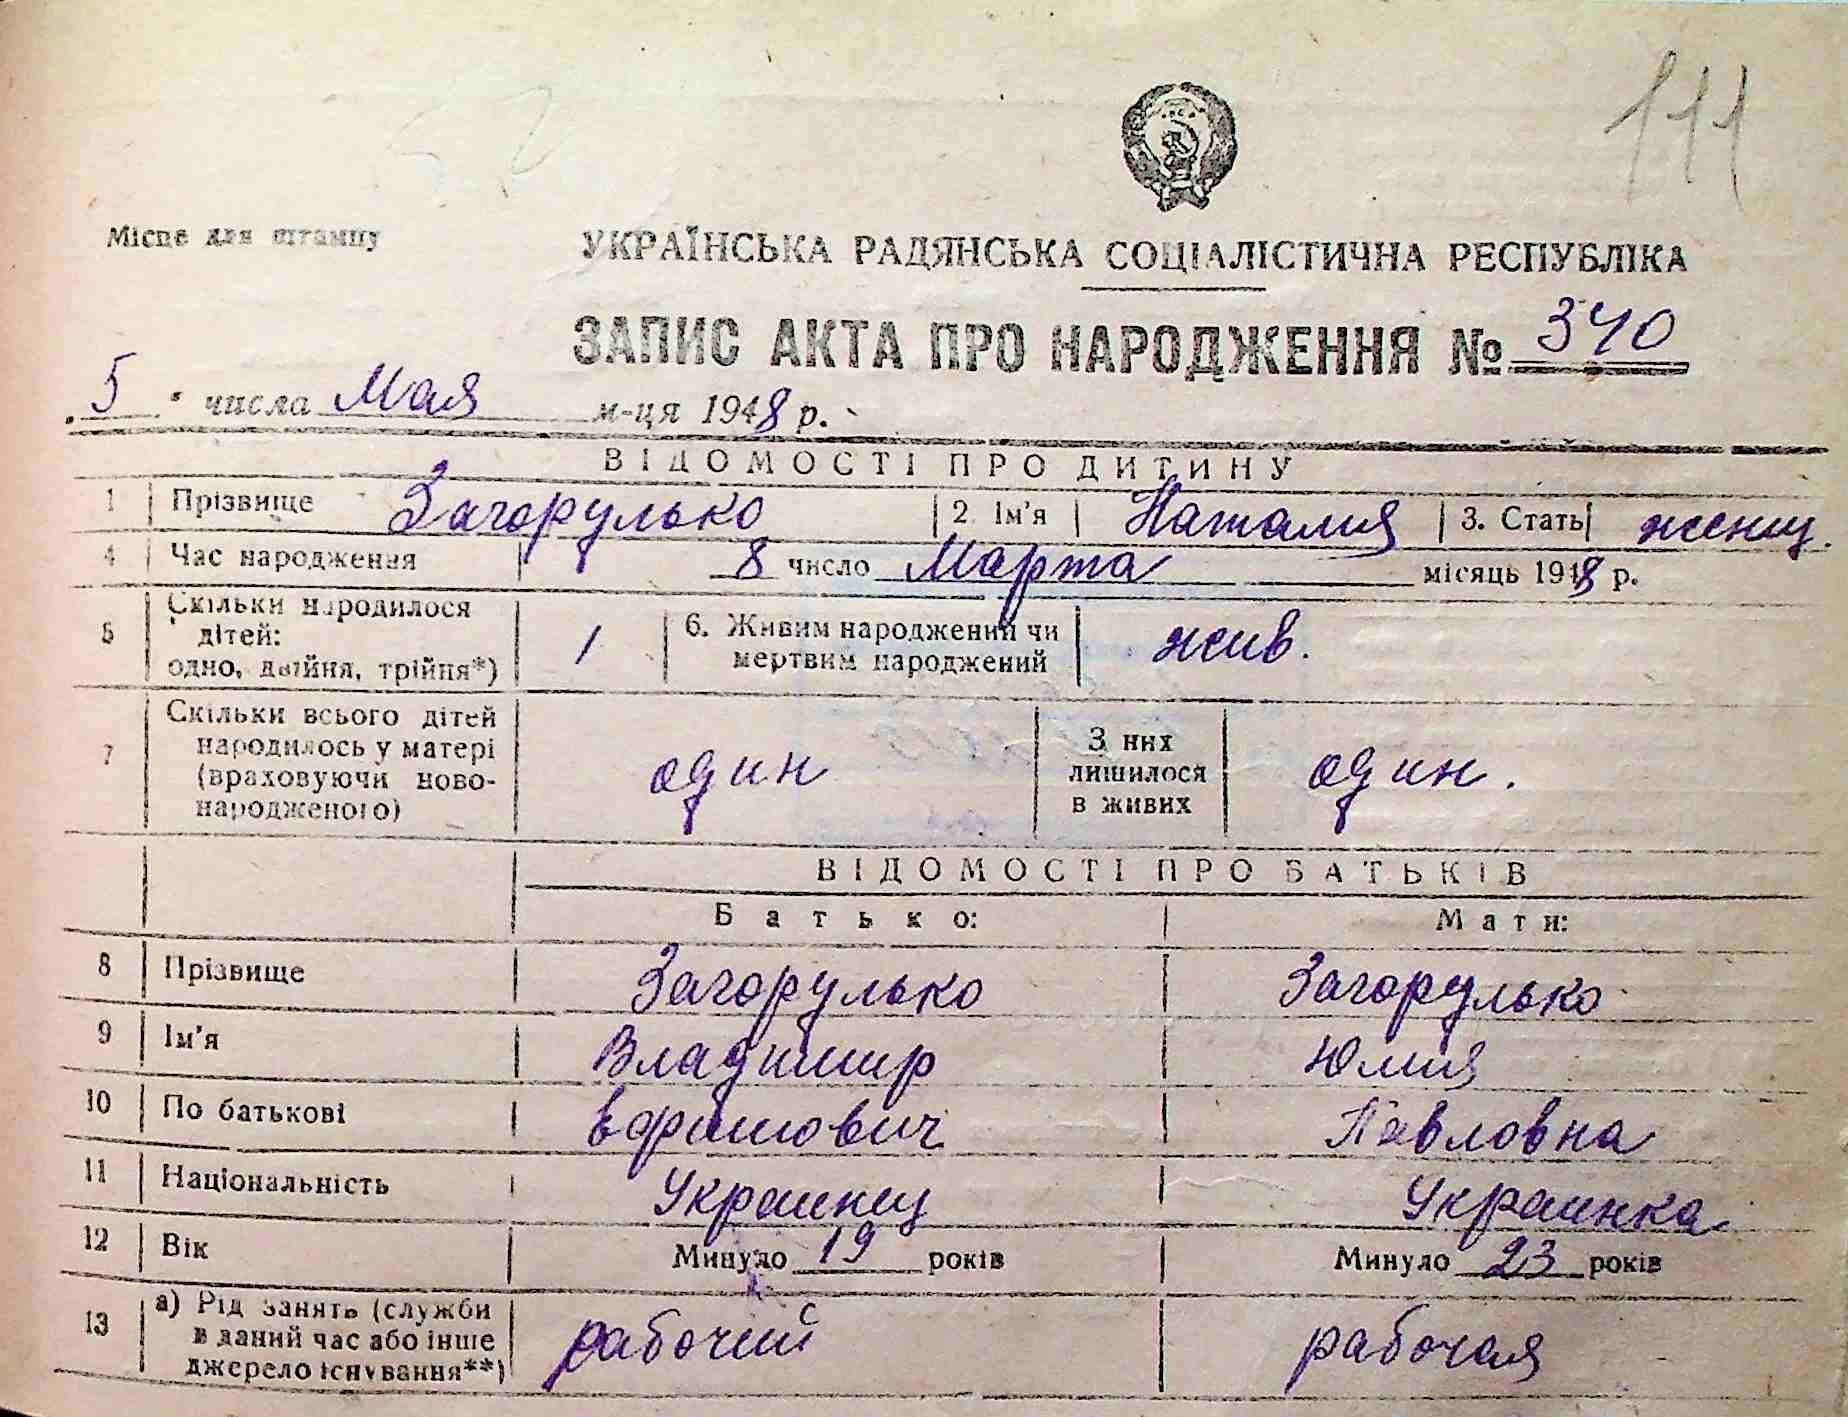 111
Місце для штампу
УКРАЇНСЬКА РАДЯНСЬКА СОЦІАЛІСТИЧНА РЕСПУБЛІКА
ЗАПИС АКТА ПРО НАРОДЖЕННЯ № 340
„ 5 " числа Мая м-ця 1948 р.
ВІДОМОСТІ ПРО ДИТИНУ
1 Прізвище Загорулько 2. Ім'я Наталия 3. Стать женщ.
4 Час народження 8 число Марта місяць 1948 р.
5 Скільки народилося дітей: одно, двійня, трійня*) 1 6. Живим народжений чи мертвим народжений жив.
7 Скільки всього дітей народилось у матері (враховуючи ново-народженого) один З них лишилося в живих один.
ВІДОМОСТІ ПРО БАТЬКІВ
Батько: Мати:
8 Прізвище Загорулько Загорулько
9 Ім'я Владимир Юлия
10 По батькові Ефимович Павловна
11 Національність Украинец Украинка
12 Вік Минуло 19 років Минуло 23 років
13 а) Рід занять (служби в даний час або інше джерело існування**) рабочий рабочая